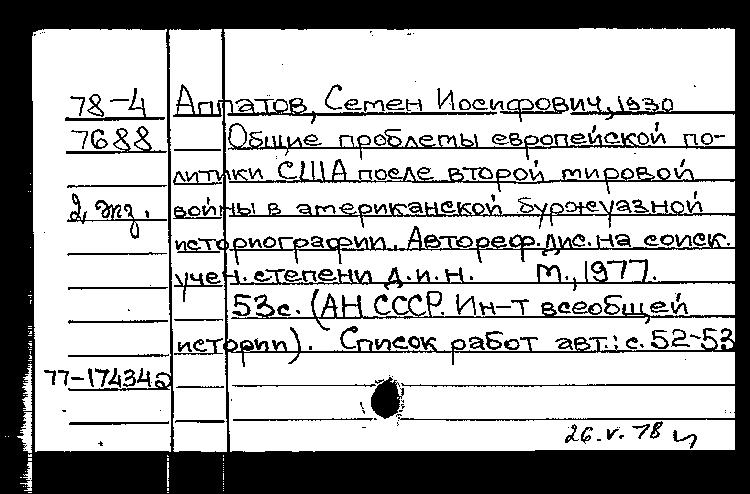 78-4 Аппатов, Семен Иосифович, 1930
7688 Общие проблемы европейской по-
литики США после второй мировой
2 экз. войны в американской буржуазной
историографии. Автореф. дис. на соиск.
учен. степени д.и.н. М., 1977.
53с. (АН СССР. Ин-т всеобщей
истории). Список работ авт.: с. 52-53
77-17434а
26.V.78